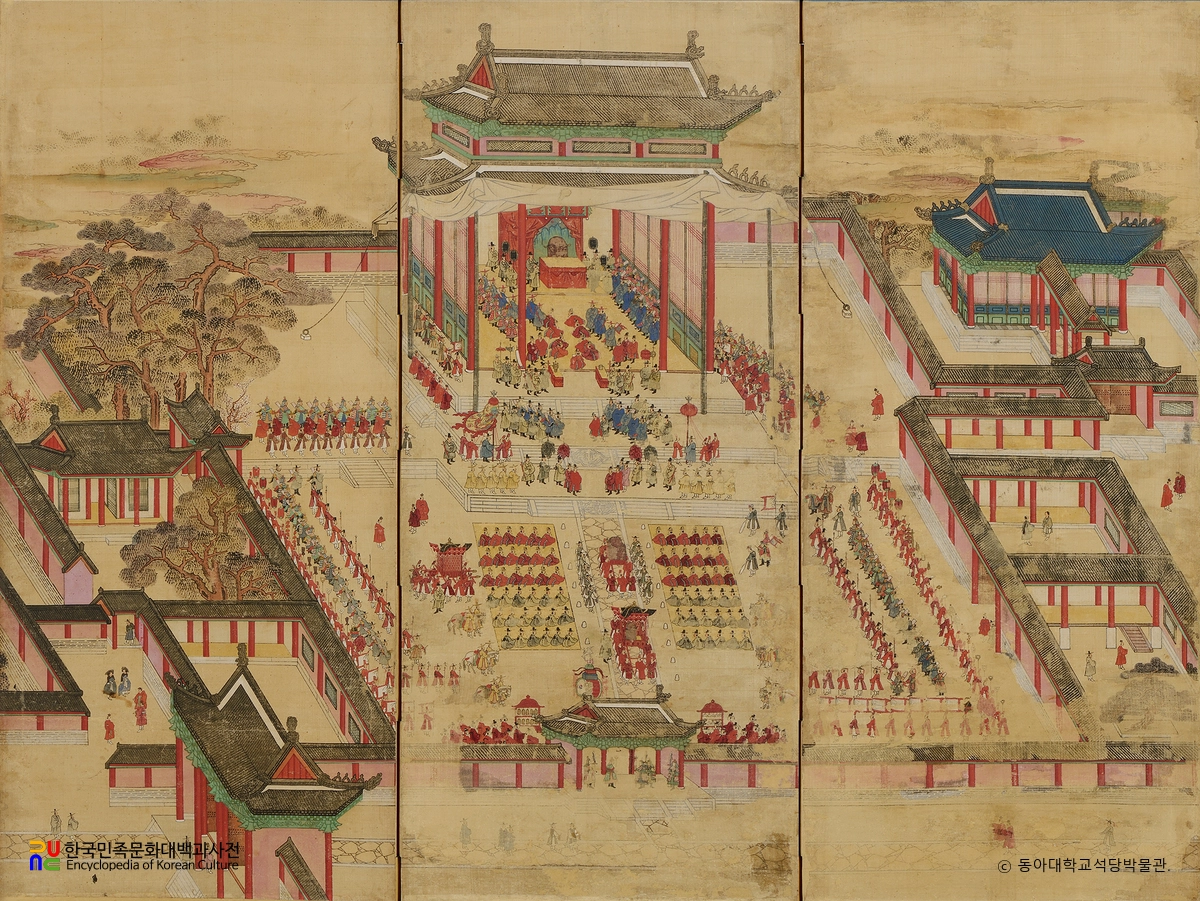 한국민족문화대백과사전
Encyclopedia of Korean Culture
© 동아대학교석당박물관.